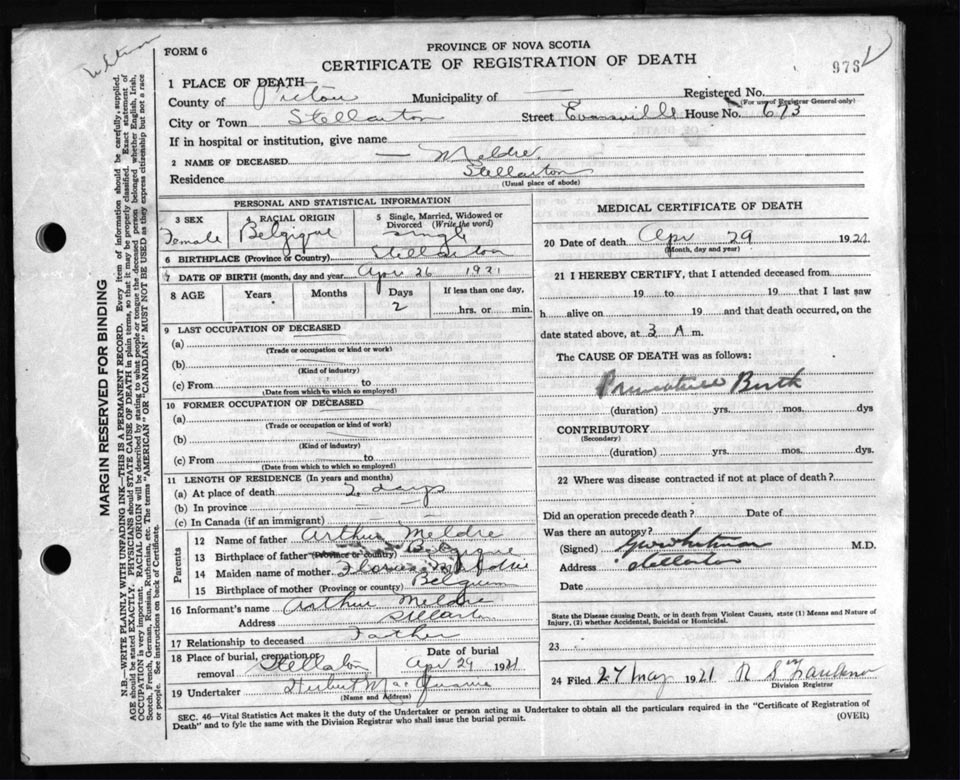 FORM 6
PROVINCE OF NOVA SCOTIA
CERTIFICATE OF REGISTRATION OF DEATH
976
1 PLACE OF DEATH—
County of Pictou Municipality of — Registered No.
(For use of Registrar General only)
City or Town Stellarton Street Evansville House No. 673
If in hospital or institution, give name
2 NAME OF DECEASED — Meldre
Residence Stellarton
(Usual place of abode)
PERSONAL AND STATISTICAL INFORMATION
3 SEX Female
4 RACIAL ORIGIN Belgique
5 Single, Married, Widowed or Divorced (Write the word) single
6 BIRTHPLACE (Province or Country) Stellarton
7 DATE OF BIRTH (month, day and year) Apr 26 1921
8 AGE Years Months Days If less than one day,
2 hrs. or min.
9 LAST OCCUPATION OF DECEASED
(a)
(Trade or occupation or kind or work)
(b)
(Kind of industry)
(c) From to
(Date from which to which so employed)
10 FORMER OCCUPATION OF DECEASED
(a)
(Trade or occupation or kind of work)
(b)
(Kind of industry)
(c) From to
(Date from which to which so employed)
11 LENGTH OF RESIDENCE (In years and months)
(a) At place of death 2 days
(b) In province
(c) In Canada (if an immigrant)
Parents
12 Name of father Arthur Meldre
13 Birthplace of father (Province or country) Belgique
14 Maiden name of mother
15 Birthplace of mother (Province or country) Belgium
16 Informant's name Arthur Meldre
Address Stellarton
17 Relationship to deceased Father
18 Place of burial, cremation or removal Stellarton
Date of burial Apr 29 1921
19 Undertaker Hubert
(Name and Address)
MEDICAL CERTIFICATE OF DEATH
20 Date of death Apr 29 1921
(Month, day and year)
21 I HEREBY CERTIFY, that I attended deceased from
19 to 19 that I last saw
h alive on 19 and that death occurred, on the
date stated above, at 3 A m.
The CAUSE OF DEATH was as follows:
Premature Birth
(duration) yrs. mos. dys
CONTRIBUTORY
(Secondary)
(duration) yrs. mos. dys.
22 Where was disease contracted if not at place of death?
Did an operation precede death? Date of
Was there an autopsy?
(Signed) M.D.
Address Stellarton
Date
State the Disease causing Death, or in death from Violent Causes, state (1) Means and Nature of
Injury, (2) whether Accidental, Suicidal or Homicidal.
23
24 Filed 27 May 1921
Division Registrar
SEC. 46—Vital Statistics Act makes it the duty of the Undertaker or person acting as Undertaker to obtain all the particulars required in the "Certificate of Registration of
Death" and to fyle the same with the Division Registrar who shall issue the burial permit.
(OVER)
MARGIN RESERVED FOR BINDING
N.B.—WRITE PLAINLY WITH UNFADING INK—THIS IS A PERMANENT RECORD. Every item of information should be carefully supplied.
AGE should be stated EXACTLY. PHYSICIANS should STATE CAUSE OF DEATH in plain terms, so that it may be properly classified. Exact statement of
OCCUPATION is very important. RACIAL ORIGIN will be described by stating to what people or tongue the deceased person belonged whether English, Irish,
Scotch, French, German, Russian, Ruthenian, etc. The terms "AMERICAN" OR "CANADIAN" MUST NOT BE USED as they express citizenship but not a race
or people. See instructions on back of Certificate.